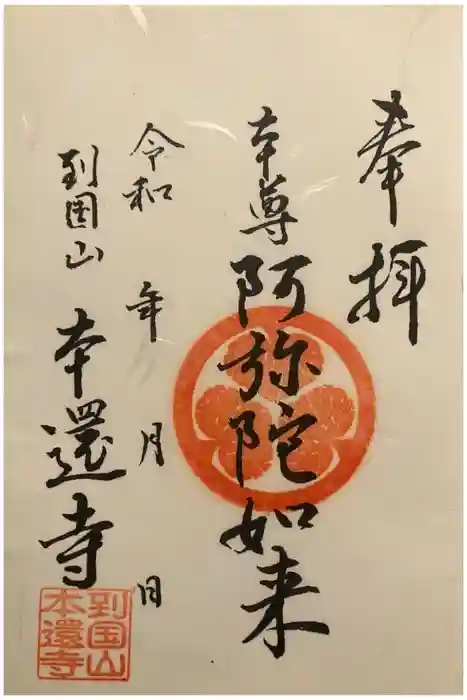 奉拝
本尊阿弥陀如来
令和 年 月 日
到国山本還寺
到国山
本還寺